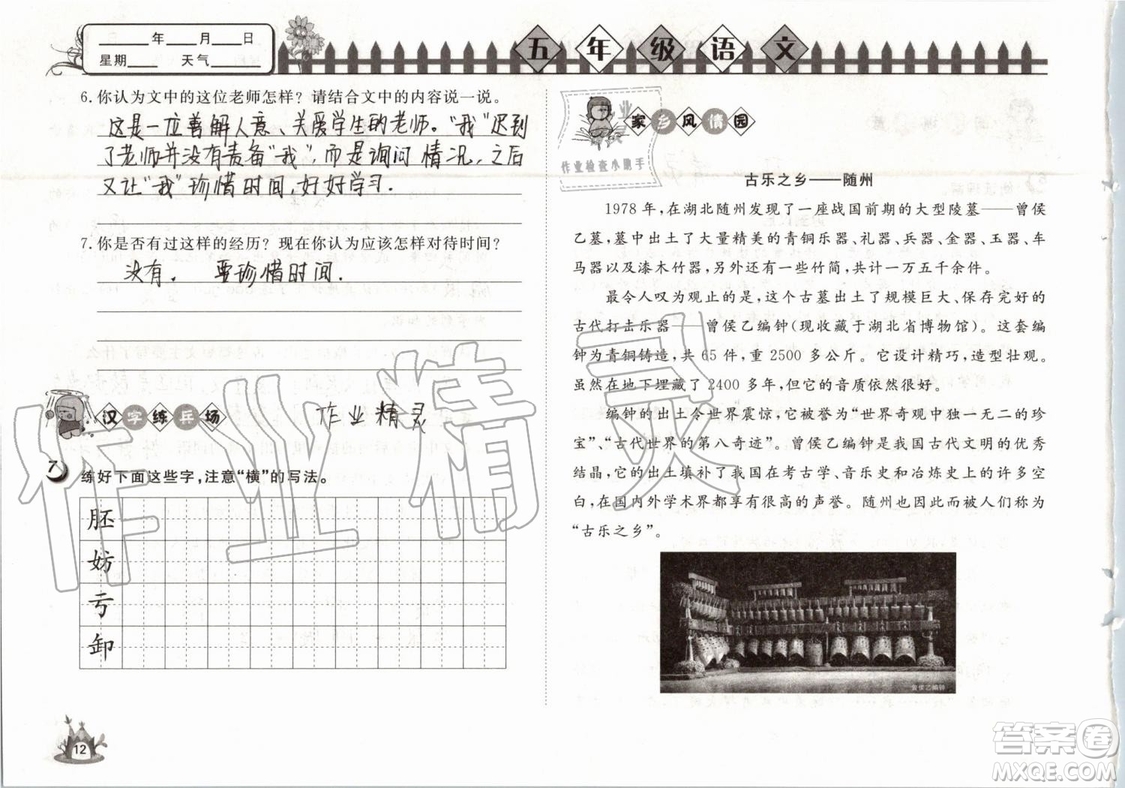 ____年____月____日
星期____ 天气____
五年级语文
6.你认为文中的这位老师怎样？请结合文中的内容说一说。
这是一位善解人意、关爱学生的老师。“我”迟到
了老师并没有责备“我”，而是询问情况，之后
又让“我”珍惜时间，好好学习．
7.你是否有过这样的经历？现在你认为应该怎样对待时间？
没有． 要珍惜时间．
汉字练兵场
作业精灵
练好下面这些字，注意“横”的写法。
胚
妨
亏
卸
12
作业检查小助手
家乡风情园
古乐之乡——随州
1978年，在湖北随州发现了一座战国前期的大型陵墓——曾侯
乙墓，墓中出土了大量精美的青铜乐器、礼器、兵器、金器、玉器、车
马器以及漆木竹器，另外还有一些竹简，共计一万五千余件。
最令人叹为观止的是，这个古墓出土了规模巨大、保存完好的
古代打击乐器——曾侯乙编钟(现收藏于湖北省博物馆)。这套编
钟为青铜铸造，共65件，重2500多公斤。它设计精巧，造型壮观。
虽然在地下埋藏了2400多年，但它的音质依然很好。
编钟的出土令世界震惊，它被誉为“世界奇观中独一无二的珍
宝”、“古代世界的第八奇迹”。曾侯乙编钟是我国古代文明的优秀
结晶，它的出土填补了我国在考古学、音乐史和冶炼史上的许多空
白，在国内外学术界都享有很高的声誉。随州也因此被人们称为
“古乐之乡”。
曾侯乙编钟
作业精灵
答案圈
MXQE.COM